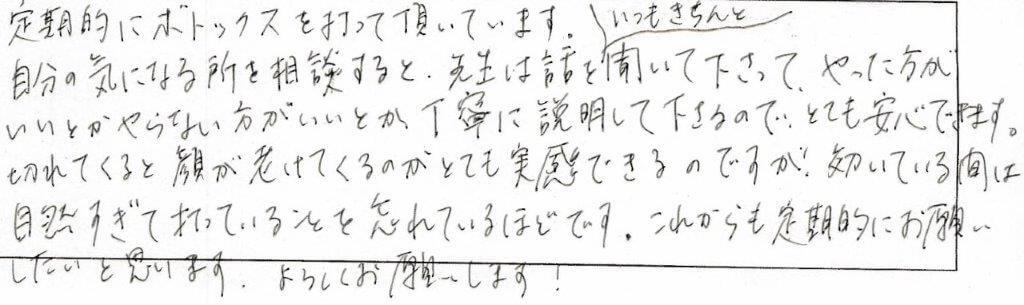 定期的にボトックスを打って頂いています。 いつもきちんと
自分の気になる所を相談すると、先生は話を聞いて下さって、やった方が
いいとかやらない方がいいとか、丁寧に説明して下さるので、とても安心できます。
切れてくると顔が老けてくるのがとても実感できるのですが、効いている間は
自然すぎて打っていることを忘れているほどです。これからも定期的にお願い
したいと思います。よろしくお願いします！